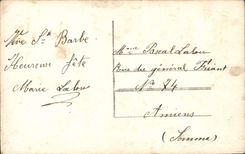 Vive Ste Barbe
Heureuse fête
Marie Lalou
Mme Pascal Lalou
Rue du général Friant
No 74
Amiens
(Somme)